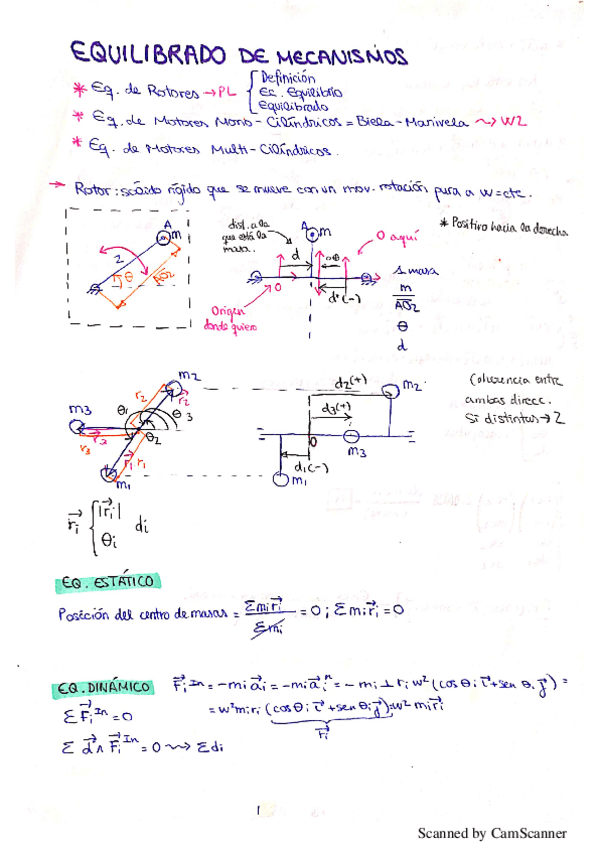 EQUILIBRADO DE MECANISMOS
* Eq. de Rotores → PL { Definición
Ec. Equilibrio
Equilibrado
* Eq. de Motores Mono-Cilíndricos = Biela-Manivela ⇝ W2
* Eq. de Motores Multi-Cilíndricos.
→ Rotor: sólido rígido que se mueve con un mov. rotación pura a w=cte.
A
m
2
θ
AO2
dist. a la
que está la
masa.
A
m
d
O
d'(-)
Origen
donde quiero
O aquí
* Positivo hacia la derecha
1 masa
m
AO2
θ
d
m2
r2
m3
θ1
θ3
θ2
r3
r1
m1
d2(+)
m2
d3(+)
O
m3
d1(-)
m1
Coherencia entre
ambas direcc.
Si distintas → 2
r⃗i { |r⃗i|
θi
di
EQ. ESTÁTICO
Posición del centro de masas = Σmir⃗i / Σmi = 0 ; Σmir⃗i = 0
EQ. DINÁMICO
F⃗i^In = -mia⃗i = -mia⃗i^n = -mi⊥riw²(cosθi i⃗ + senθi j⃗) =
= w²miri(cosθi i⃗ + senθi j⃗) = w²mir⃗i
r⃗i
ΣF⃗i^In = 0
Σ d⃗ ∧ F⃗i^In = 0 ⇝ Σdi
1
Scanned by CamScanner